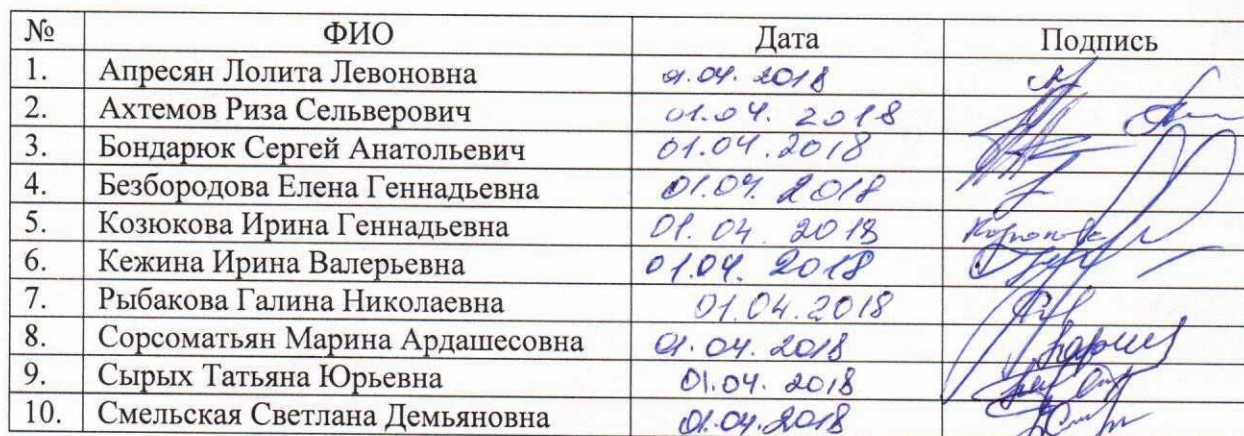 № ФИО Дата Подпись
1. Апресян Лолита Левоновна 01.04.2018
2. Ахтемов Риза Сельверович 01.04.2018
3. Бондарюк Сергей Анатольевич 01.04.2018
4. Безбородова Елена Геннадьевна 01.04.2018
5. Козюкова Ирина Геннадьевна 01.04.2018
6. Кежина Ирина Валерьевна 01.04.2018
7. Рыбакова Галина Николаевна 01.04.2018
8. Сорсоматьян Марина Ардашесовна 01.04.2018
9. Сырых Татьяна Юрьевна 01.04.2018
10. Смельская Светлана Демьяновна 01.04.2018